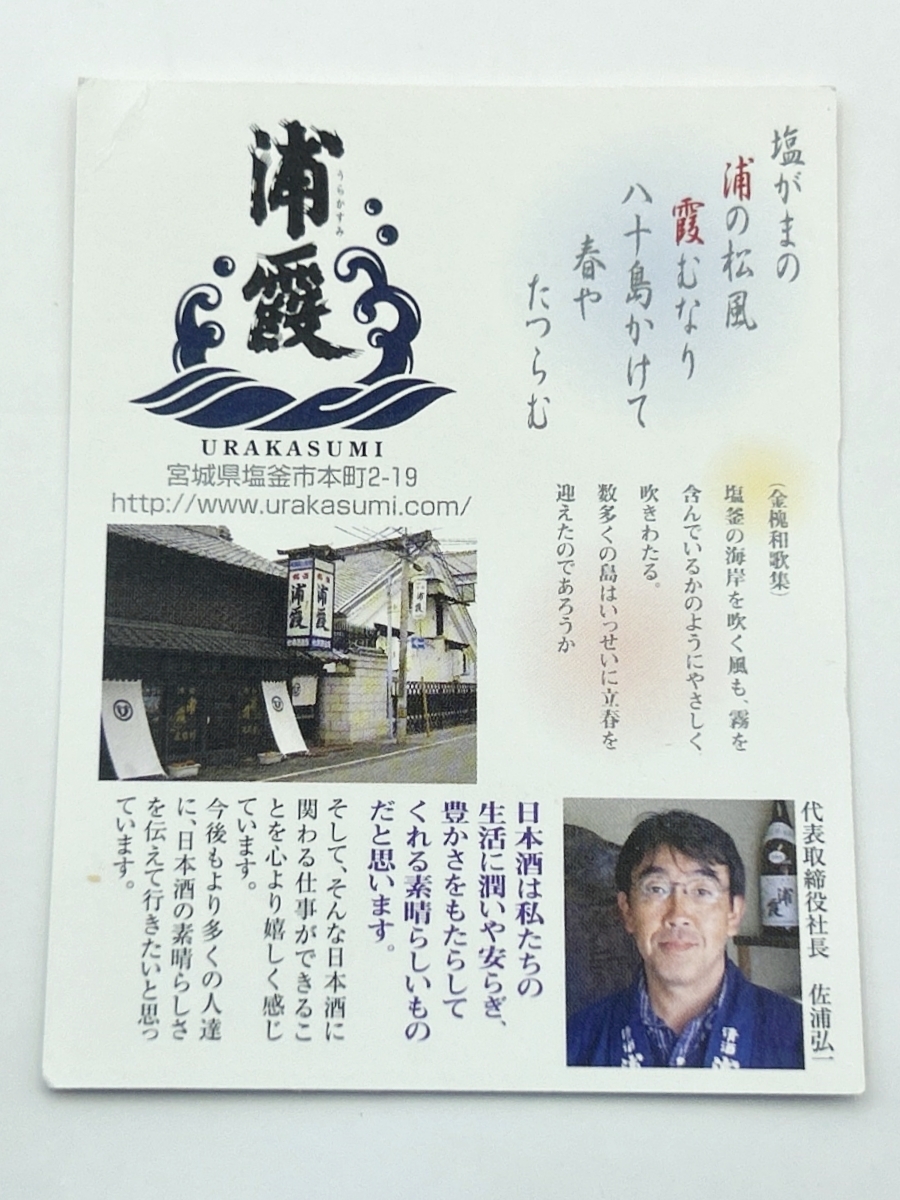 塩がまの
浦の松風
霞むなり
八十島かけて
春や
たつらむ
(金槐和歌集)
塩釜の海岸を吹く風も、霧を
含んでいるかのようにやさしく、
吹きわたる。
数多くの島はいっせいに立春を
迎えたのであろうか
浦霞
うらかすみ
URAKASUMI
宮城県塩釜市本町2-19
http://www.urakasumi.com/
浦霞
浦霞
浦霞
代表取締役社長 佐浦弘一
浦霞
清酒
浦
日本酒は私たちの
生活に潤いや安らぎ、
豊かさをもたらして
くれる素晴らしいもの
だと思います。
そして、そんな日本酒に
関わる仕事ができるこ
とを心より嬉しく感じ
ています。
今後もより多くの人達
に、日本酒の素晴らしさ
を伝えて行きたいと思っ
ています。